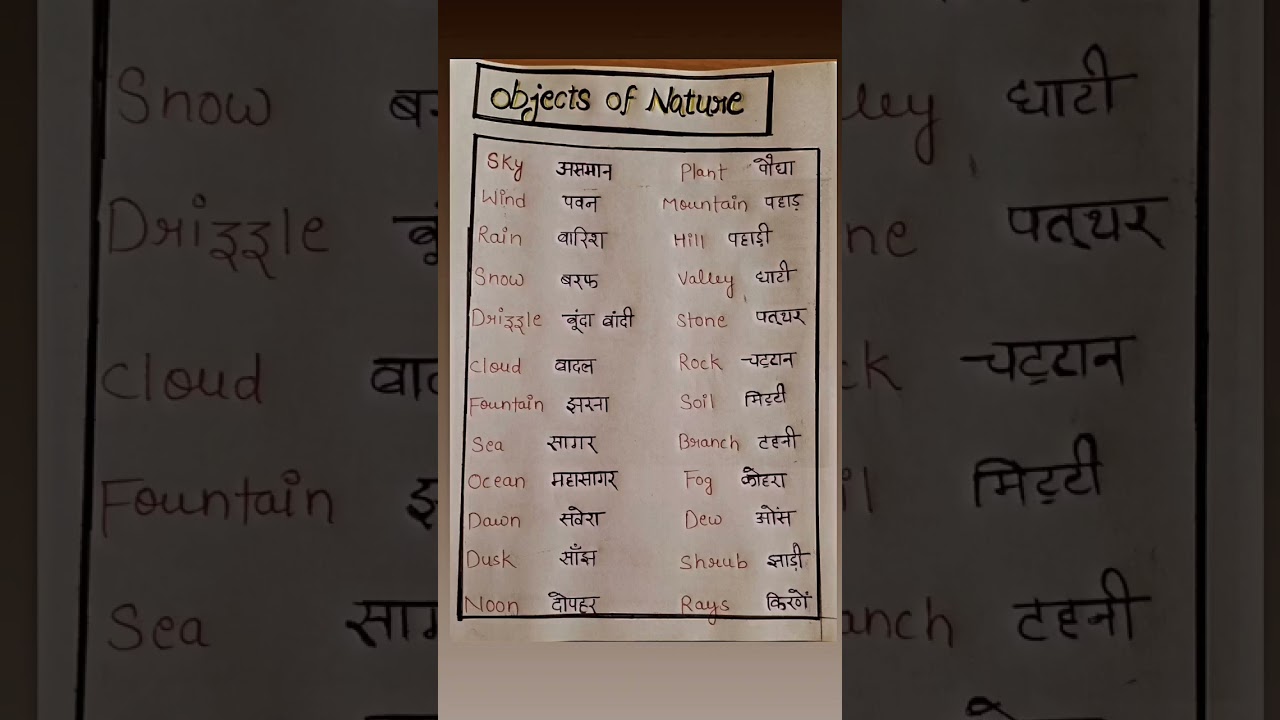 Objects of Nature
Sky असमान Plant पौधा
Wind पवन Mountain पहाड़
Rain बारिश Hill पहाड़ी
Snow बरफ Valley घाटी
Drizzle बूंदा बांदी Stone पत्थर
Cloud बादल Rock चट्टान
Fountain झरना Soil मिट्टी
Sea सागर Branch टहनी
Ocean महासागर Fog कोहरा
Dawn सवेरा Dew ओंस
Dusk साँझ Shrub झाड़ी
Noon दोपहर Rays किरणें